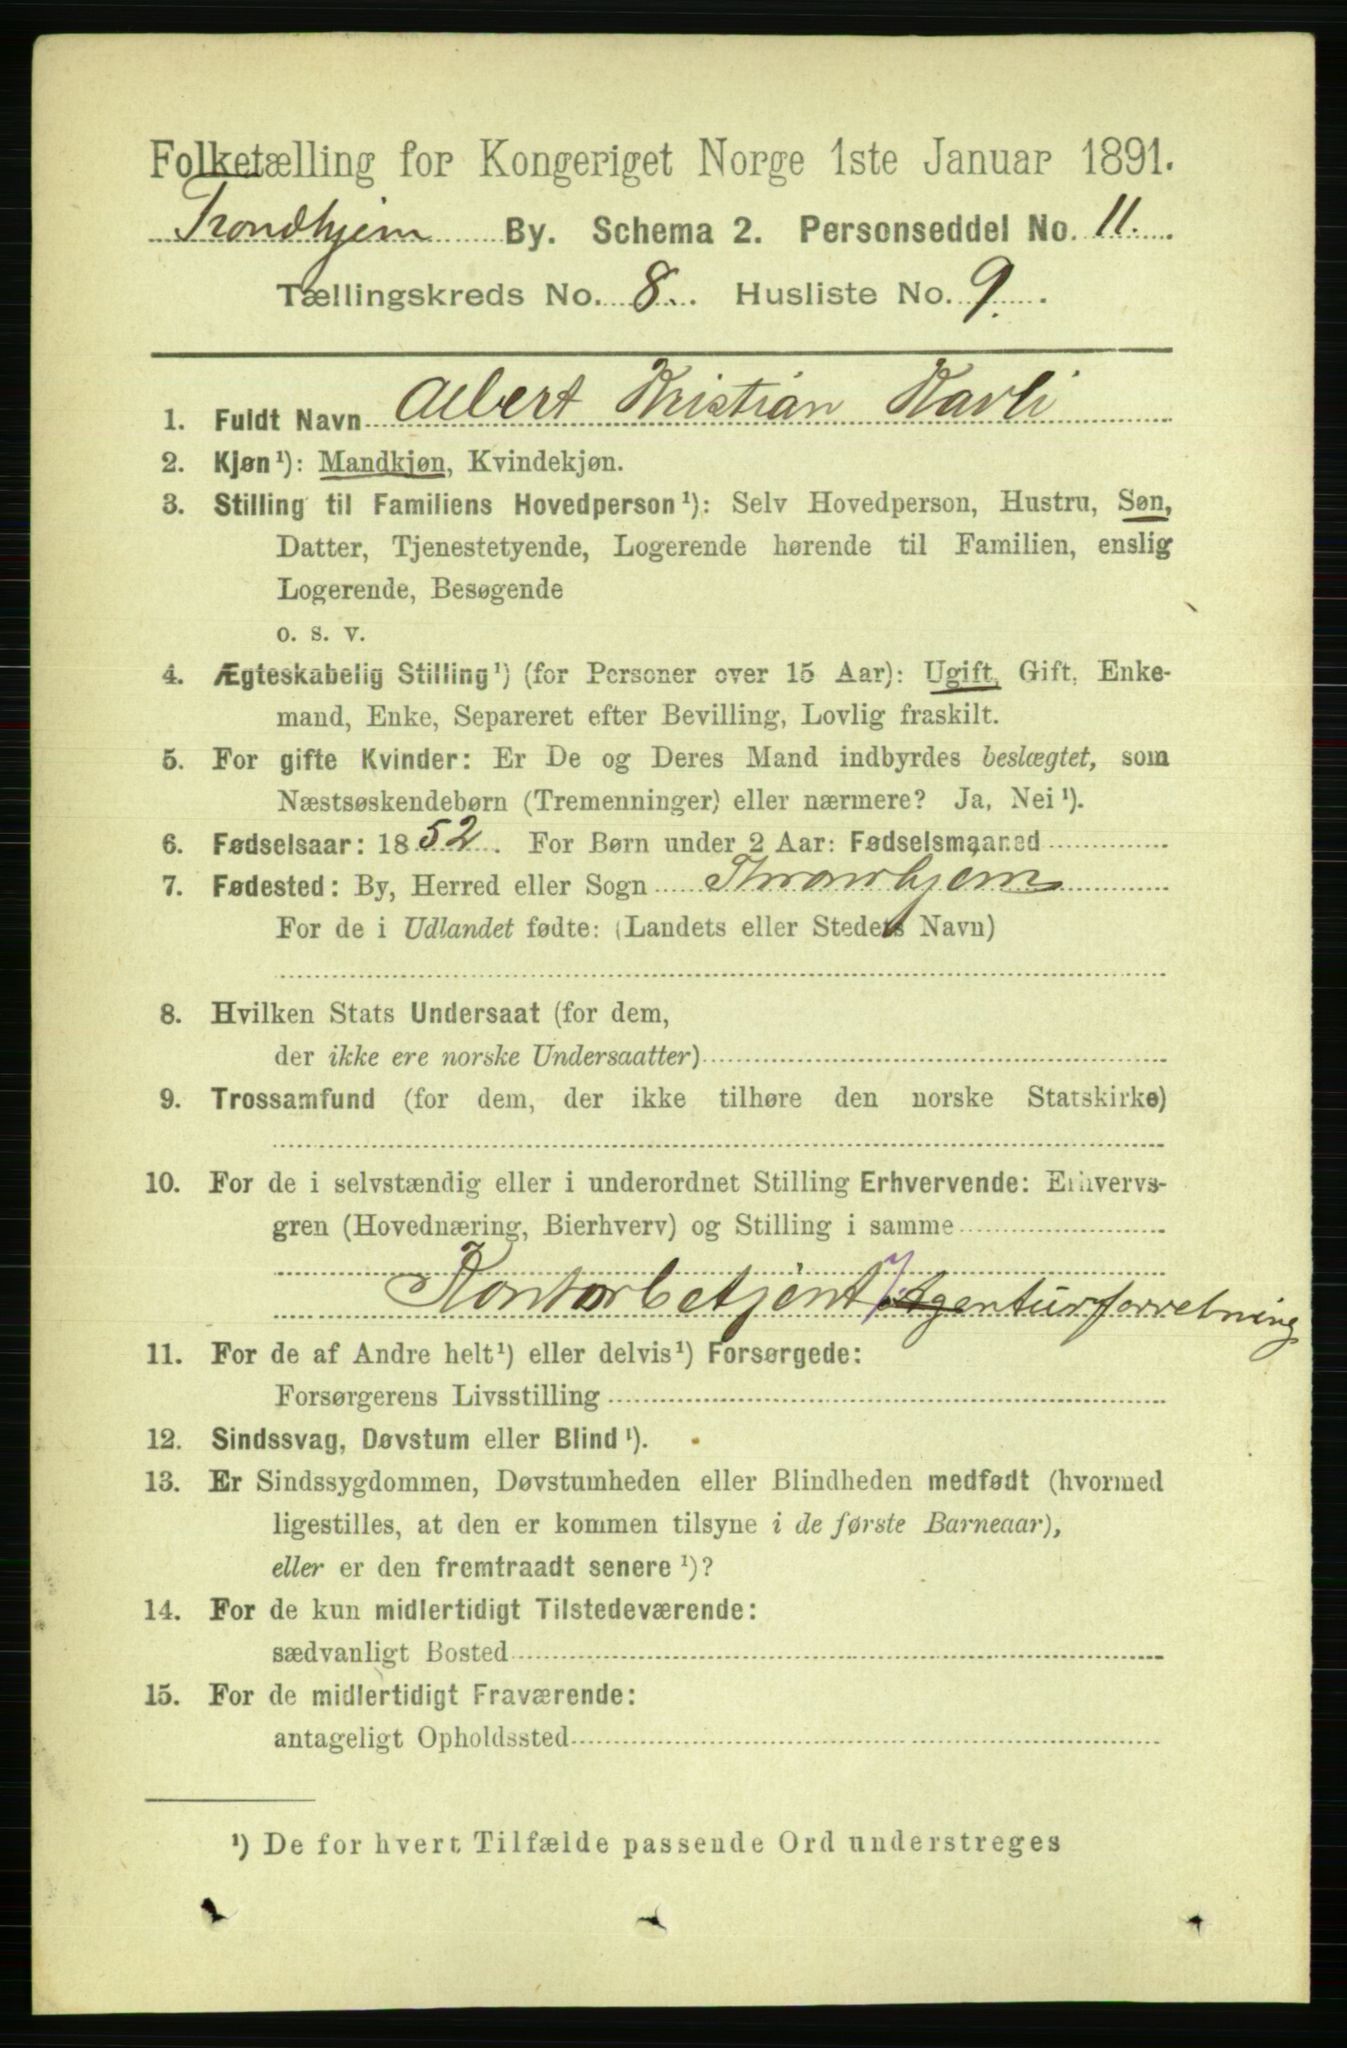 Folketælling for Kongeriget Norge 1ste Januar 1891.
Trondhjem By. Schema 2. Personseddel No. 11.
Tællingskreds No. 8. Husliste No. 9.
1. Fuldt Navn Albert Kristian Havli
2. Kjøn¹): Mandkjøn, Kvindekjøn.
3. Stilling til Familiens Hovedperson¹): Selv Hovedperson, Hustru, Søn,
Datter, Tjenestetyende, Logerende hørende til Familien, enslig
Logerende, Besøgende
o. s. v.
4. Ægteskabelig Stilling¹) (for Personer over 15 Aar): Ugift, Gift, Enke-
mand, Enke, Separeret efter Bevilling, Lovlig fraskilt.
5. For gifte Kvinder: Er De og Deres Mand indbyrdes beslægtet, som
Næstsøskendebørn (Tremenninger) eller nærmere? Ja, Nei¹).
6. Fødselsaar: 1852. For Børn under 2 Aar: Fødselsmaaned
7. Fødested: By, Herred eller Sogn Thronhjem
For de i Udlandet fødte: (Landets eller Stedets Navn)
8. Hvilken Stats Undersaat (for dem,
der ikke ere norske Undersaatter)
9. Trossamfund (for dem, der ikke tilhøre den norske Statskirke)
10. For de i selvstændig eller i underordnet Stilling Erhvervende: Erhvervs-
gren (Hovednæring, Bierhverv) og Stilling i samme
Kontorbetjent i Agenturforretning
11. For de af Andre helt¹) eller delvis¹) Forsørgede:
Forsørgerens Livsstilling
12. Sindssvag, Døvstum eller Blind¹).
13. Er Sindssygdommen, Døvstumheden eller Blindheden medfødt (hvormed
ligestilles, at den er kommen tilsyne i de første Barneaar),
eller er den fremtraadt senere¹)?
14. For de kun midlertidigt Tilstedeværende:
sædvanligt Bosted
15. For de midlertidigt Fraværende:
antageligt Opholdssted
¹) De for hvert Tilfælde passende Ord understreges